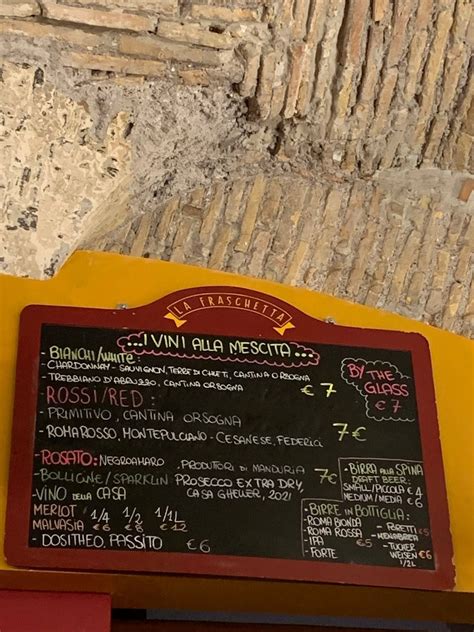 LA FRASCHETTA
...I VINI ALLA MESCITA...
- BIANCHI/WHITE:
- CHARDONNAY - SAUVIGNON, TERRE DI CHIETI, CANTINA ORSOGNA
- TREBBIANO D'ABRUZZO, CANTINA ORSOGNA € 7
BY THE
GLASS
€ 7
- ROSSI/RED:
- PRIMITIVO, CANTINA ORSOGNA
- ROMA ROSSO, MONTEPULCIANO - CESANESE, FEDERICI 7€
- ROSATO: NEGROAMARO, PRODUTTORI DI MANDURIA 7€
- BOLLICINE/SPARKLIN: PROSECCO EXTRA DRY,
CASA GHELLER, 2021
- VINO DELLA CASA
MERLOT 1/4 1/2 1/1L
MALVASIA €6 €8 €12
- DOSITHEO, PASSITO €6
- BIRRA ALLA SPINA
DRAFT BEER:
SMALL/PICCOLA €4
MEDIUM/MEDIA €6
- BIRRE IN BOTTIGLIA:
- ROMA BIONDA
- ROMA ROSSA
- IPA €5
- FORTE
- PERETTI €5
- MENABREA
- TUCKER
WEISEN €6
1/2L